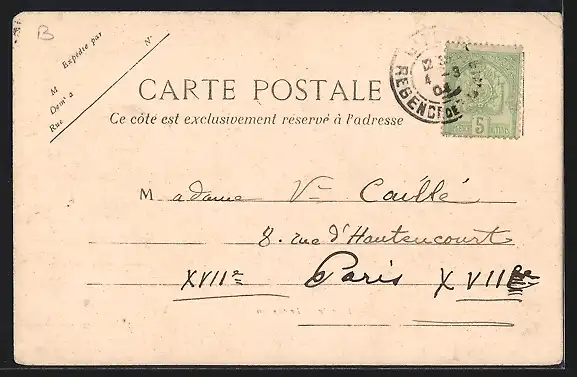 B
Expédié par
M N°
Dem<sup>t</sup> à
Rue
CARTE POSTALE
Ce côté est exclusivement réservé à l'adresse
4 -3
04
REGENCE DE
5
Madame Vve Caillé
8. rue d'Hautencourt
XVIIe Paris XVIIe